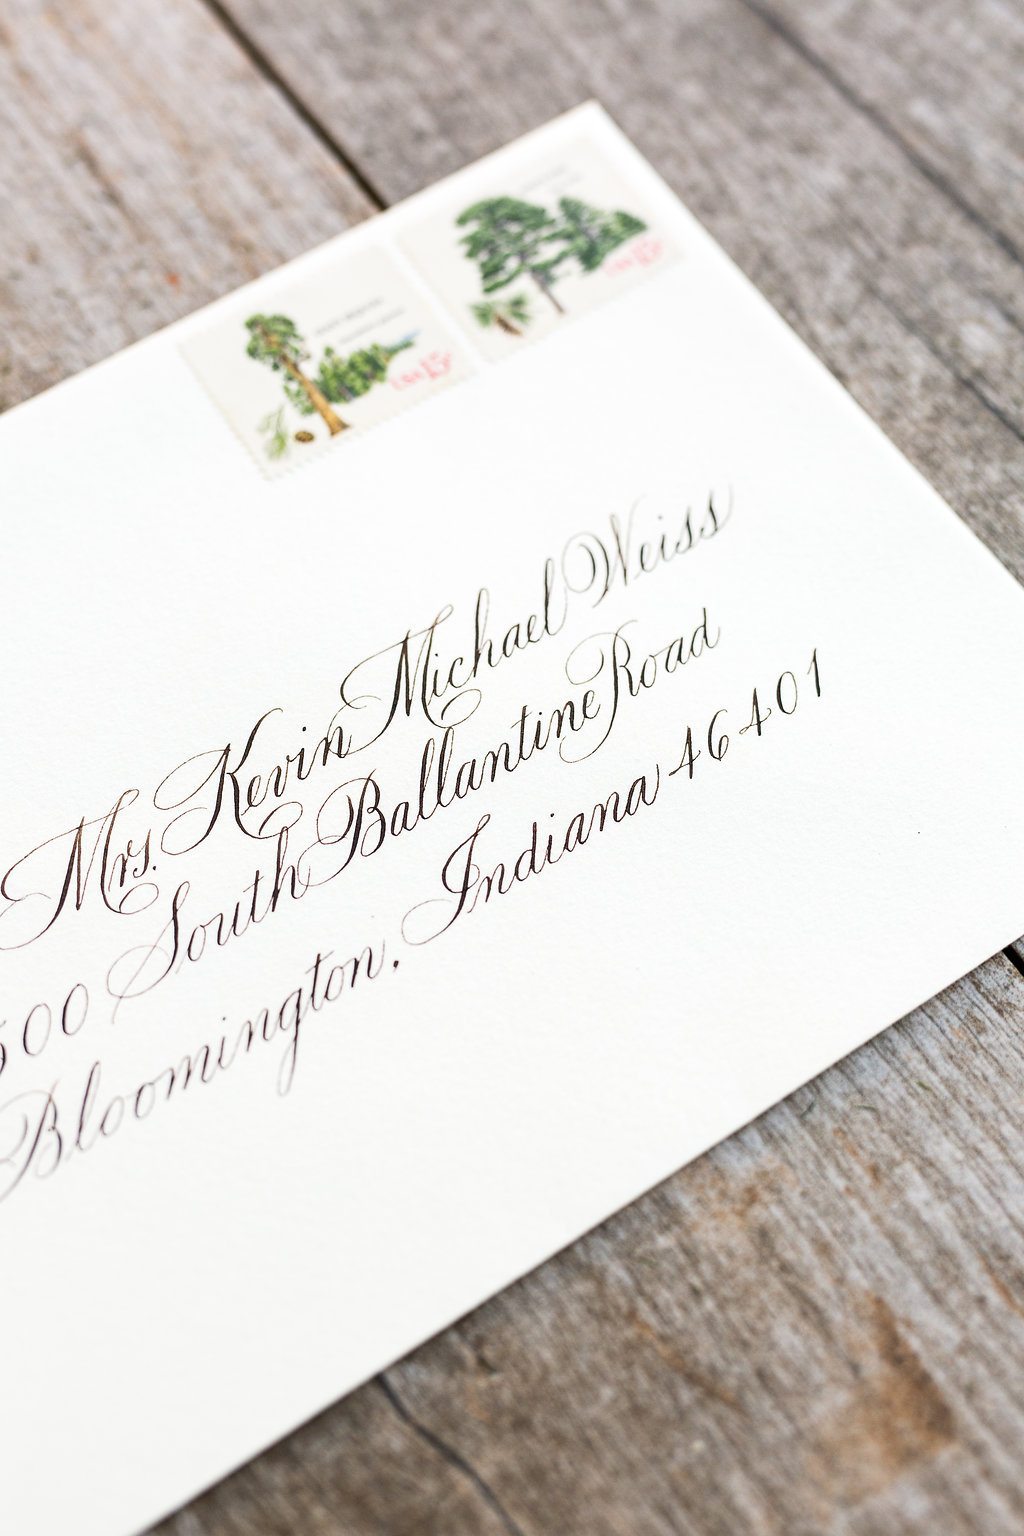 USA 15c
USA 15c
Mrs. Kevin Michael Weiss
500 South Ballantine Road
Bloomington, Indiana 46401